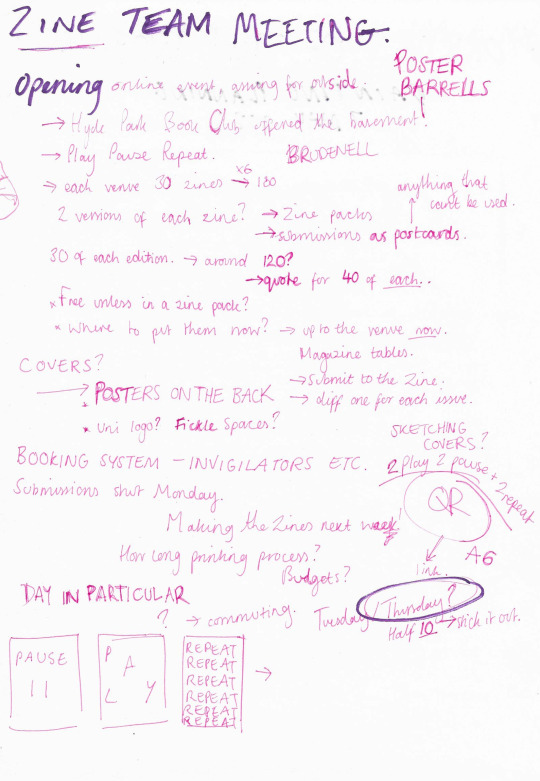 ZINE TEAM MEETING.
Opening online event aiming for outside.
POSTER
BARRELLS
→ Hyde Park Book Club offered the basement!
→ Play Pause Repeat.
BRUDENELL
→ each venue 30 zines → 180
x6
anything that
can't be used.
2 versions of each zine? → Zine packs
→ submissions as postcards.
30 of each edition. → around 120?
→ quote for 40 of each..
* Free unless in a zine pack?
* Where to put them now? → up to the venue now.
Magazine tables.
COVERS?
→ Submit to the Zine.
→ POSTERS ON THE BACK → diff one for each issue.
* Uni logo? Fickle Spaces?
SKETCHING
COVERS?
BOOKING SYSTEM - INVIGILATORS ETC.
2 play 2 pause + 2 repeat
Submissions shut Monday.
QR
Making the Zines next week!
A6
How long printing process?
link.
Budgets?
DAY IN PARTICULAR
? → commuting. Tuesday / Thursday?
Half 10 → stick it out.
PAUSE
||
P
A
L Y
REPEAT
REPEAT
REPEAT
REPEAT
REPEAT
REPEAT
→